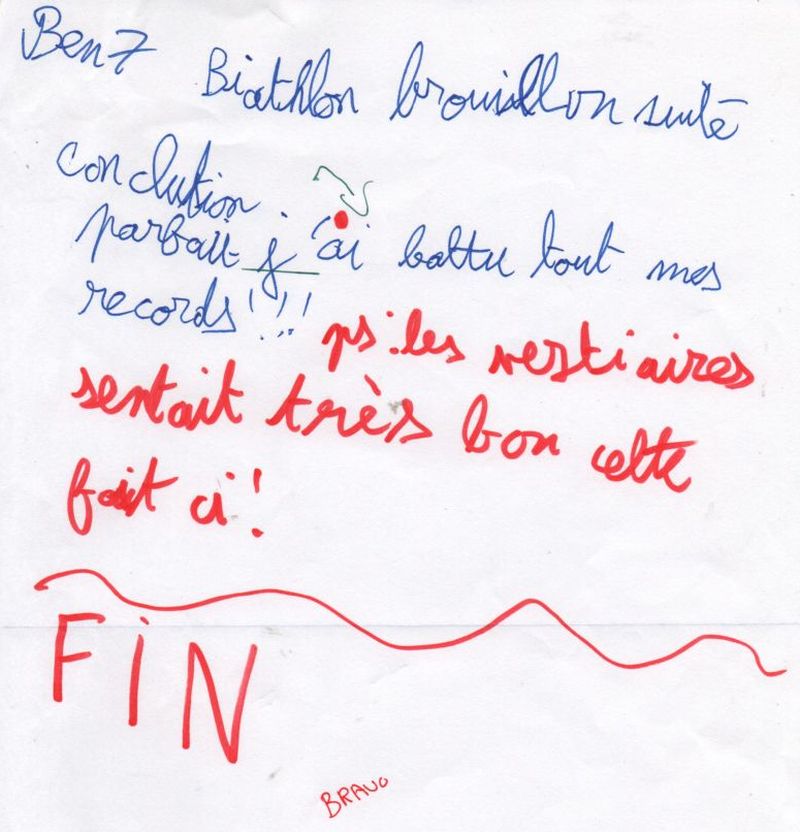 Ben7 Biathlon brouillon suite
conclution.
parfait j'ai battu tout mes
records!!! ps: les vestiaires
sentait très bon cette
fait ci!
FIN
BRAVO